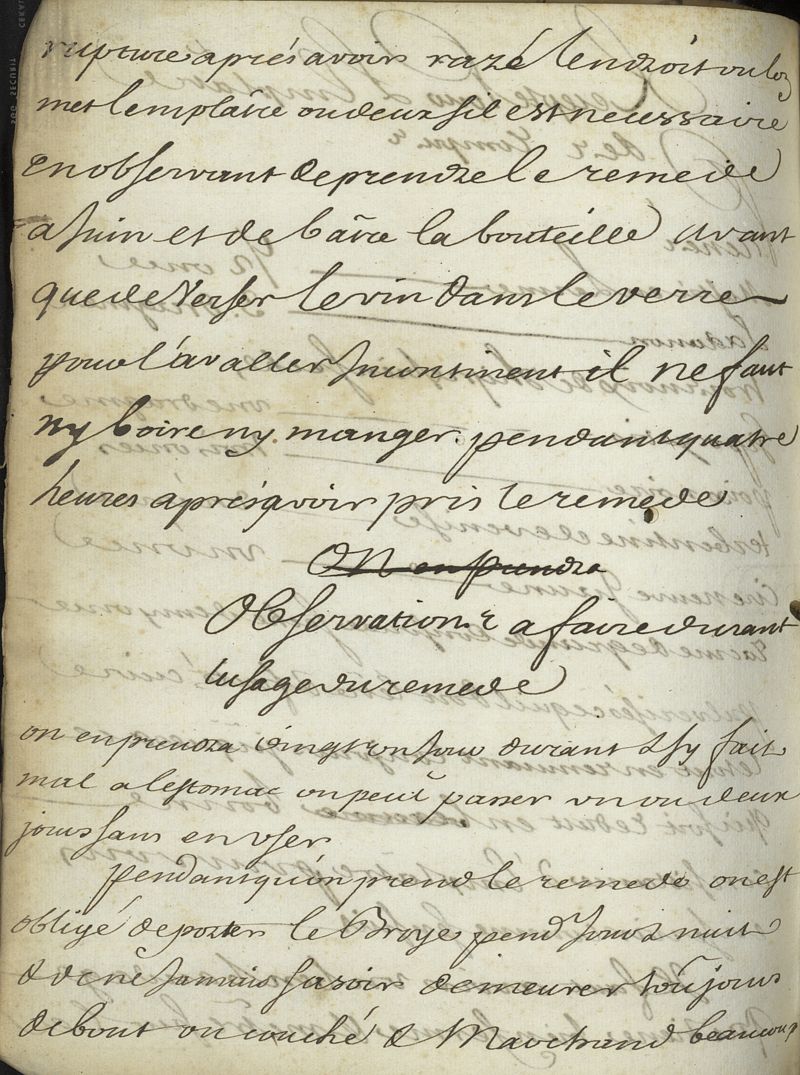 rupture aprés avoir razé lendroit ou lon
met lemplâtre ou deux sil est necessaire
en observant de prendre le remede
a Juin et de bâire la bouteille avant
que de verser le vin dans le verre
pour l'avaller Incontinent il ne faut
ny boire ny manger pendant quatre
heures aprés avoir pris le remede
On en prendra
Observation.s a faire durant
lusage du remede
on en prendra vingt un Jour durant & sy fait
mal a lestomac on peut passer un ou deux
jours sans en user
pendant qu'on prend le remede on est
obligé de porter le Broye pend^t Jour & nuit
& de ne Jamais sasoir demeurer toûjours
debout ou couché & Marchand beaucoup